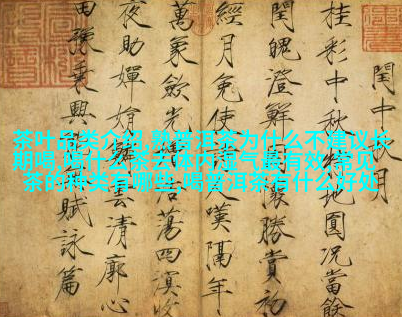 茶叶品类介绍,熟普洱茶为什么不建议长
期喝,喝什么茶去体内湿气最有效,常见
茶的种类有哪些,喝普洱茶有什么好处
閏中月
桂彩中秋地圓況當餘
閏魄澄鮮勝賞初
經月免使嘆隔年
萬象斂光浩蕩四溟收
夜助嬋娟雲清廓心
田豫乘興賦詠篇